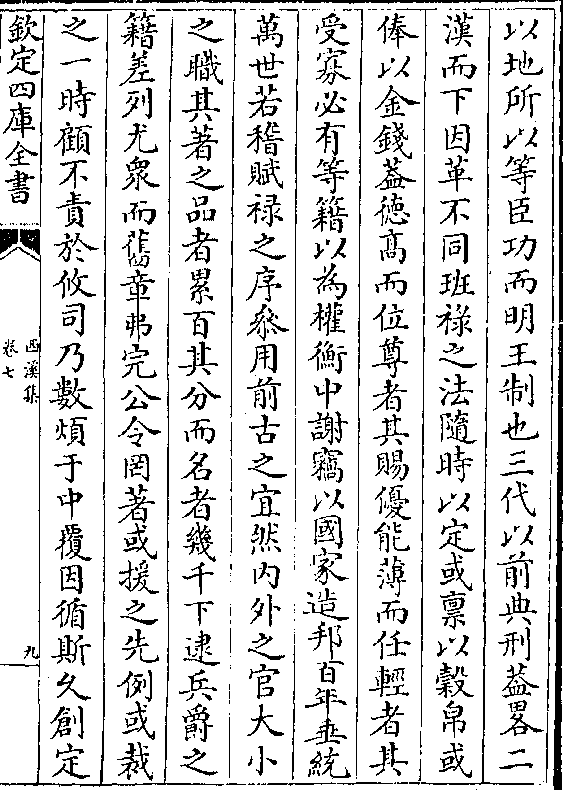 以地所以等臣功而明王制也三代以前典刑葢畧二
漢而下因革不同班禄之法隨時以定或禀以穀帛或
俸以金錢葢徳髙而位尊者其賜優能薄而任輕者其
受寡必有等籍以為權衡中謝竊以國家造邦百年垂統
萬世若稽賦禄之序叅用前古之宜然内外之官大小
之職其著之品者累百其分而名者幾千下逮兵爵之
籍差列尤衆而舊章弗完公令罔著或援之先例或裁
之一時顧不責於攸司乃數煩于中覆因循斯久創定
欽定四庫全書
西溪集
卷七
九